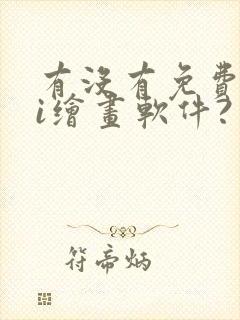 有沒有免費
i繪畫軟件?
符帝炳